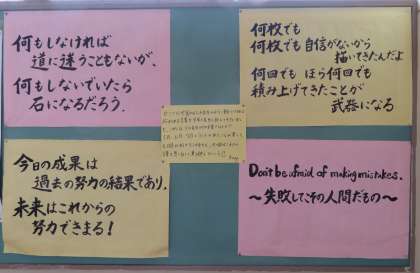 何もしなければ
道に迷うこともないが、
何もしないでいたら
石になるだろう。
何枚でも
何枚でも自信がないから
描いてきたんだよ
何回でも ほら何回でも
積み上げてきたことが
武器になる
今日の成果は
過去の努力の結果であり、
未来はこれからの
努力できまる！
Don't be afraid of making mistakes.
～失敗してこその人間だもの～